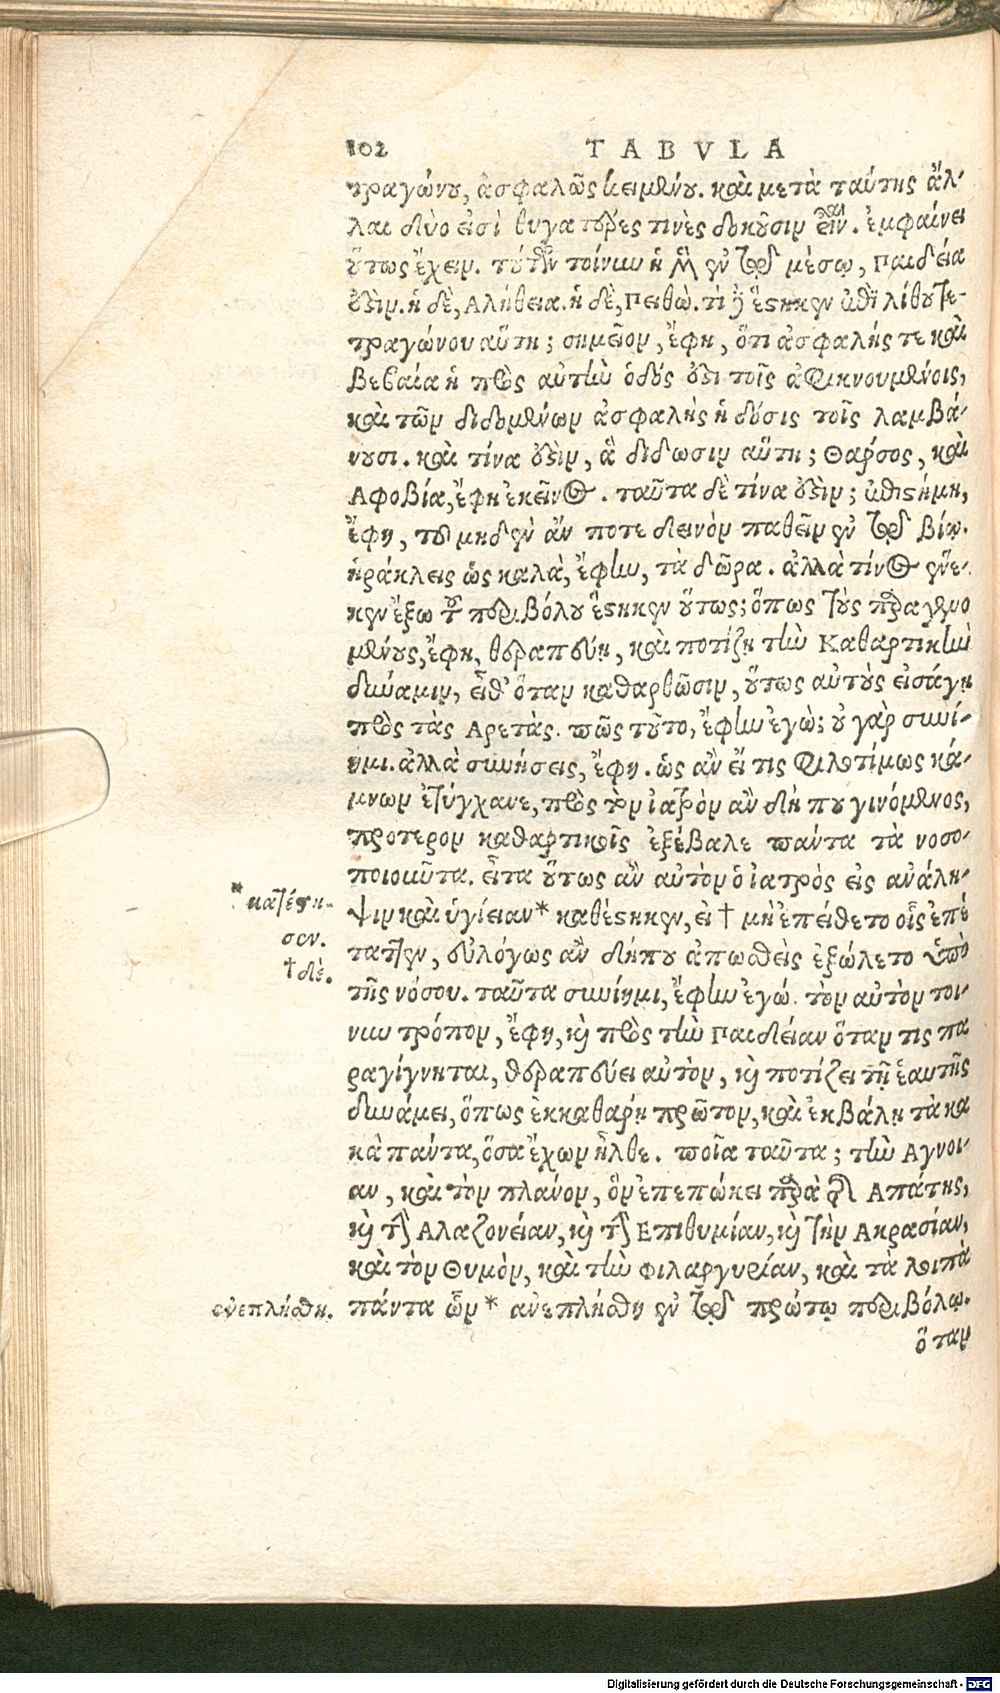 102 TABVLA
τραγώνου, ἀσφαλῶς κειμένου. καὶ μετὰ ταύτης ἄλ-
λαι δύο εἰσὶ θυγατέρες τινὲς δοκοῦσιν εἶναι. ἐμφαίνει
οὕτως ἔχειν. τούτων τοίνυν ἡ μὲν ἐν τῷ μέσῳ, Παιδεία
ἐστὶν. ἡ δὲ, Αλήθεια. ἡ δὲ, Πειθὼ. τί δὲ ἕστηκεν ἐπὶ λίθου τε-
τραγώνου αὕτη; σημεῖον, ἔφη, ὅτι ἀσφαλής τε καὶ
βεβαία ἡ πρὸς αὐτὴν ὁδός ἐστι τοῖς ἀφικνουμένοις,
καὶ τῶν διδομένων ἀσφαλὴς ἡ δόσις τοῖς λαμβά-
νουσι. καὶ τίνα ἐστὶν, ἃ δίδωσιν αὕτη; Θάρσος, καὶ
Αφοβία, ἔφη ἐκεῖνος. ταῦτα δὲ τίνα ἐστὶν; ἐπιστήμη,
ἔφη, τοῦ μηδὲν ἄν ποτε δεινὸν παθεῖν ἐν τῷ βίῳ.
ἡράκλεις ὡς καλὰ, ἔφην, τὰ δῶρα. ἀλλὰ τίνος ἕνε-
κεν ἔξω τοῦ περιβόλου ἕστηκεν οὕτως; ὅπως τοὺς παραγενο
μένους, ἔφη, θεραπεύῃ, καὶ ποτίζῃ τὴν Καθαρτικὴν
δύναμιν, εἶθ' ὅταν καθαρθῶσιν, οὕτως αὐτοὺς εἰσάγῃ
πρὸς τὰς Αρετὰς. πῶς τοῦτο, ἔφην ἐγὼ; οὐ γὰρ συνί-
ημι. ἀλλὰ συνήσεις, ἔφη. ὡς ἂν εἴ τις φιλοτίμως κά-
μνων ἐτύγχανε, πρὸς τὸν ἰατρὸν ἂν δή που γινόμενος,
πρότερον καθαρτικοῖς ἐξέβαλε πάντα τὰ νοσο-
ποιοῦντα. εἶτα οὕτως ἂν αὐτὸν ὁ ἰατρὸς εἰς ἀνάλη-
* κατέστη-
ψιν καὶ ὑγίειαν* καθέστηκεν, εἰ † μὴ ἐπείθετο οἷς ἐπέ
σεν.
ταττεν, εὐλόγως ἂν δήπου ἀπωσθεὶς ἐξώλετο ὑπὸ
† δὲ.
τῆς νόσου. ταῦτα συνίημι, ἔφην ἐγώ. τὸν αὐτὸν τοί-
νυν τρόπον, ἔφη, καὶ πρὸς τὴν Παιδείαν ὅταν τις πα
ραγίγνηται, θεραπεύει αὐτὸν, καὶ ποτίζει τῇ ἑαυτῆς
δυνάμει, ὅπως ἐκκαθάρῃ πρῶτον, καὶ ἐκβάλῃ τὰ κα
κὰ πάντα, ὅσα ἔχων ἦλθε. ποῖα ταῦτα; τὴν Αγνοι-
αν, καὶ τὸν πλάνον, ὃν ἐπεπώκει παρὰ τῆς Απάτης,
καὶ τὴν Αλαζονείαν, καὶ τὴν Επιθυμίαν, καὶ τὴν Ακρασίαν,
καὶ τὸν Θυμὸν, καὶ τὴν Φιλαργυρίαν, καὶ τὰ λοιπὰ
ἐνεπλήσθη. πάντα ὧν* ἀνεπλήσθη ἐν τῷ πρώτῳ περιβόλῳ.
ὅταν
Digitalisierung gefördert durch die Deutsche Forschungsgemeinschaft - DFG